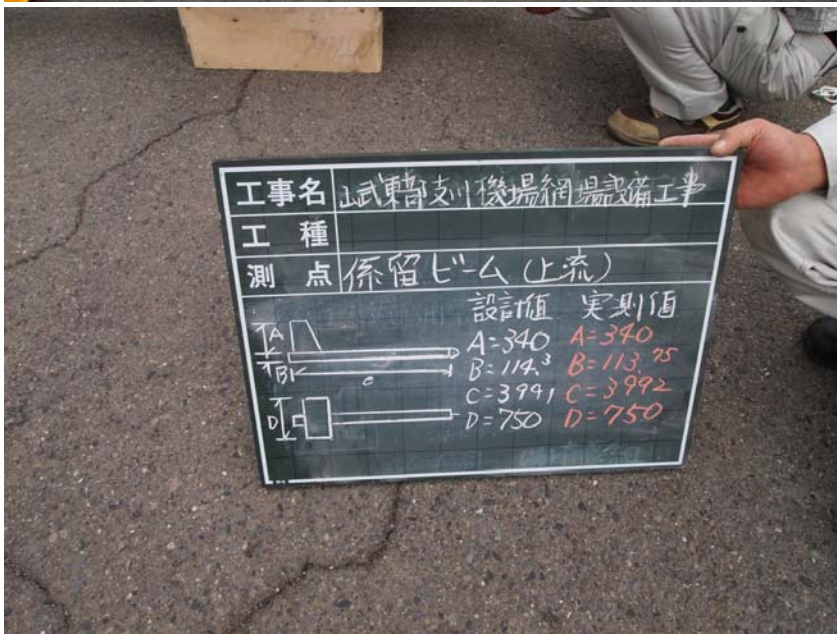 工事名 山武東部支川機場網場設備工事
工種
測点 係留ビーム(上流)
設計値 実測値
A A=340 A=340
B C B=114.3 B=113.75
C=3991 C=3992
D D=750 D=750